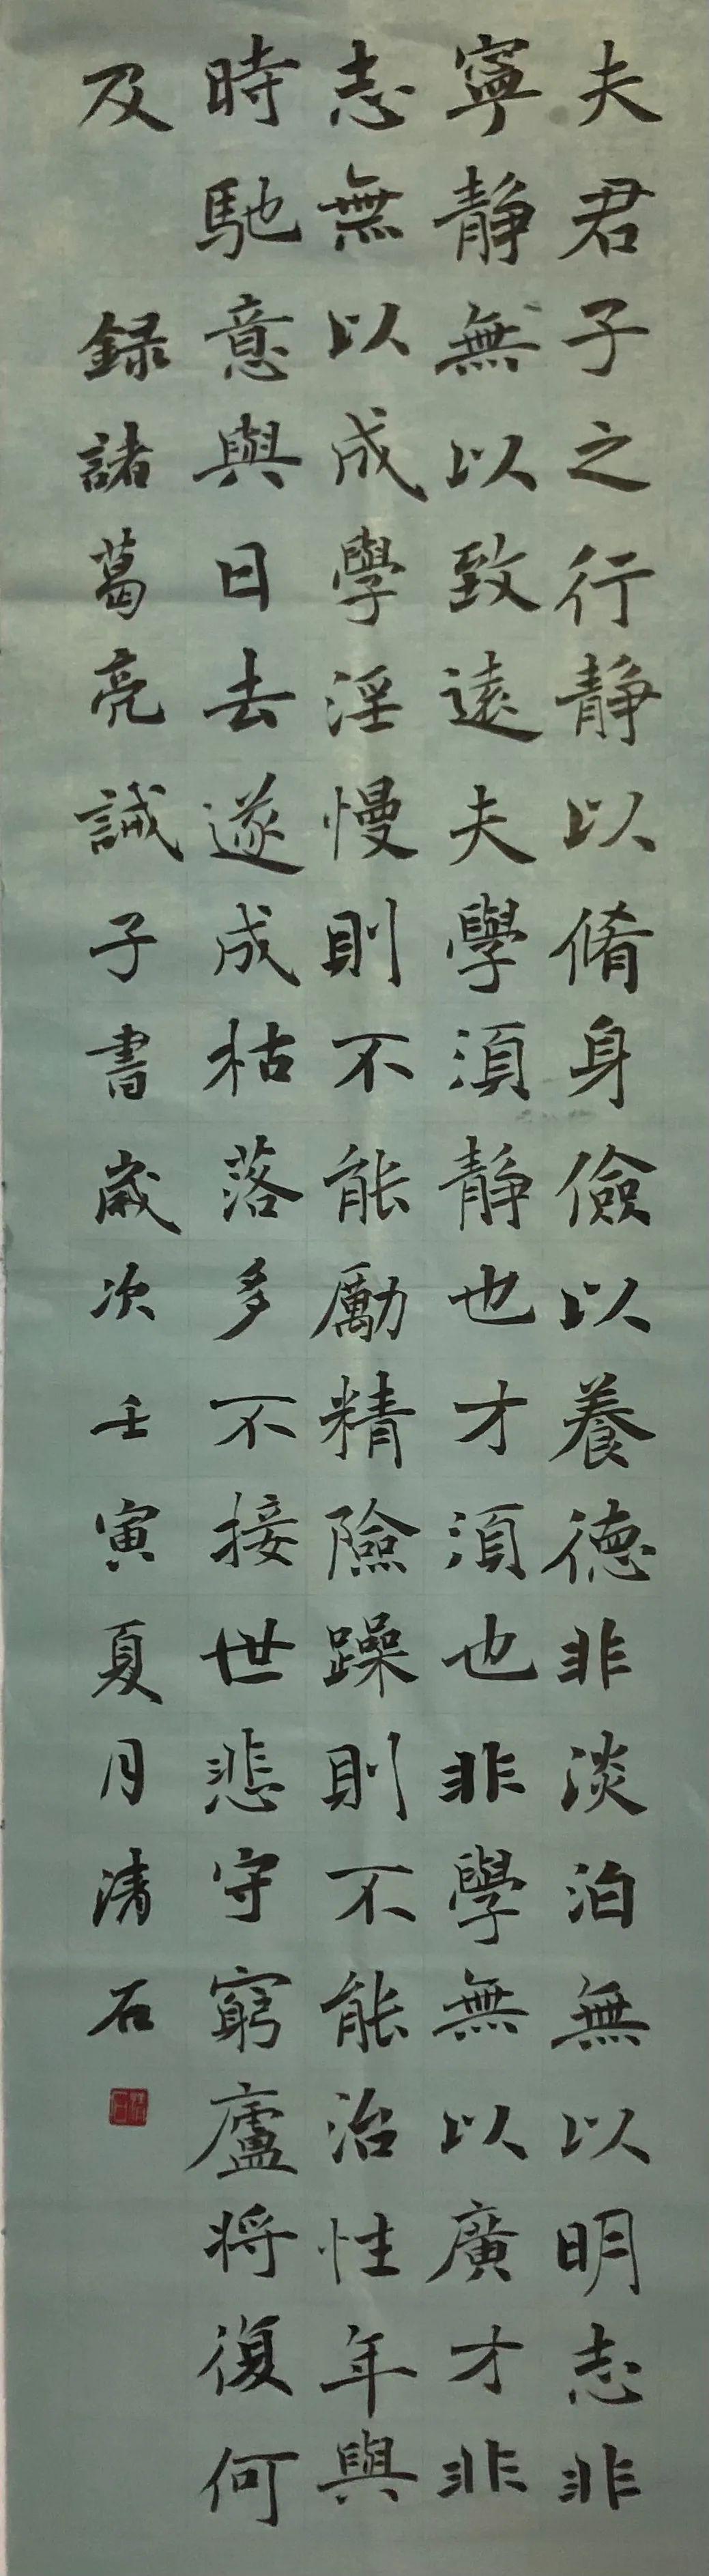 夫君子之行靜以脩身儉以養德非淡泊無以明志非
寧靜無以致遠夫學須靜也才須也非學無以廣才非
志無以成學淫慢則不能勵精險躁則不能治性年與
時馳意與日去遂成枯落多不接世悲守窮廬將復何
及 錄諸葛亮誡子書歲次壬寅夏月清石